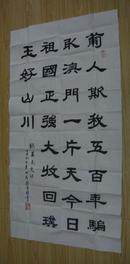 葡人斯我五百年騙
取澳門一片天今日
祖國正強大收回璞
玉好山川